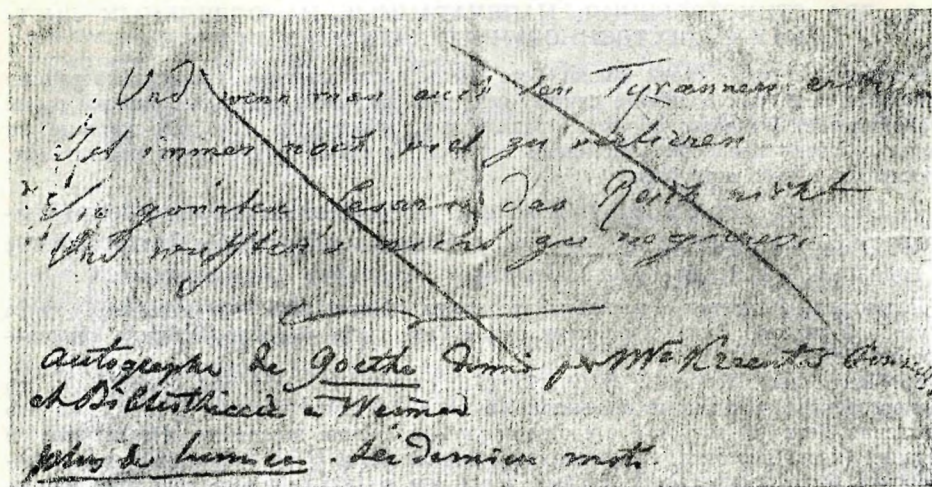 Und wenn man auch den Tyrannen
Ist immer noch viel zu verlieren
Sie gönnten Cesarn das Reich nicht
Und wussten's nicht zu regieren
autographe de Goethe donné par Mr Kraeuter
et Bibliothécaire à Weimar
plus de lumière. Ses derniers mots.